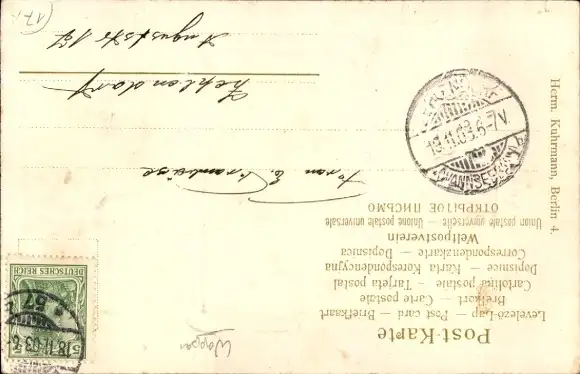 Post-Karte
Levelező-Lap — Post card — Briefkaart
Brefkort — Carte postale
Cartolina postale - Tarjeta postal
Dopisnice — Karta Korespondencyjna
Correspondenzkarte — Dopisnica
Weltpostverein
Union postale universelle — Unione postale universale
ОТКРЫТОЕ ПИСЬМО
Frau E.
Zehlendorf
Herm. Kuhrmann, Berlin 4.
DEUTSCHES REICH
5
18.11.03
18.11.03.6-7V.
(WANNSEEB
Wappen
(17